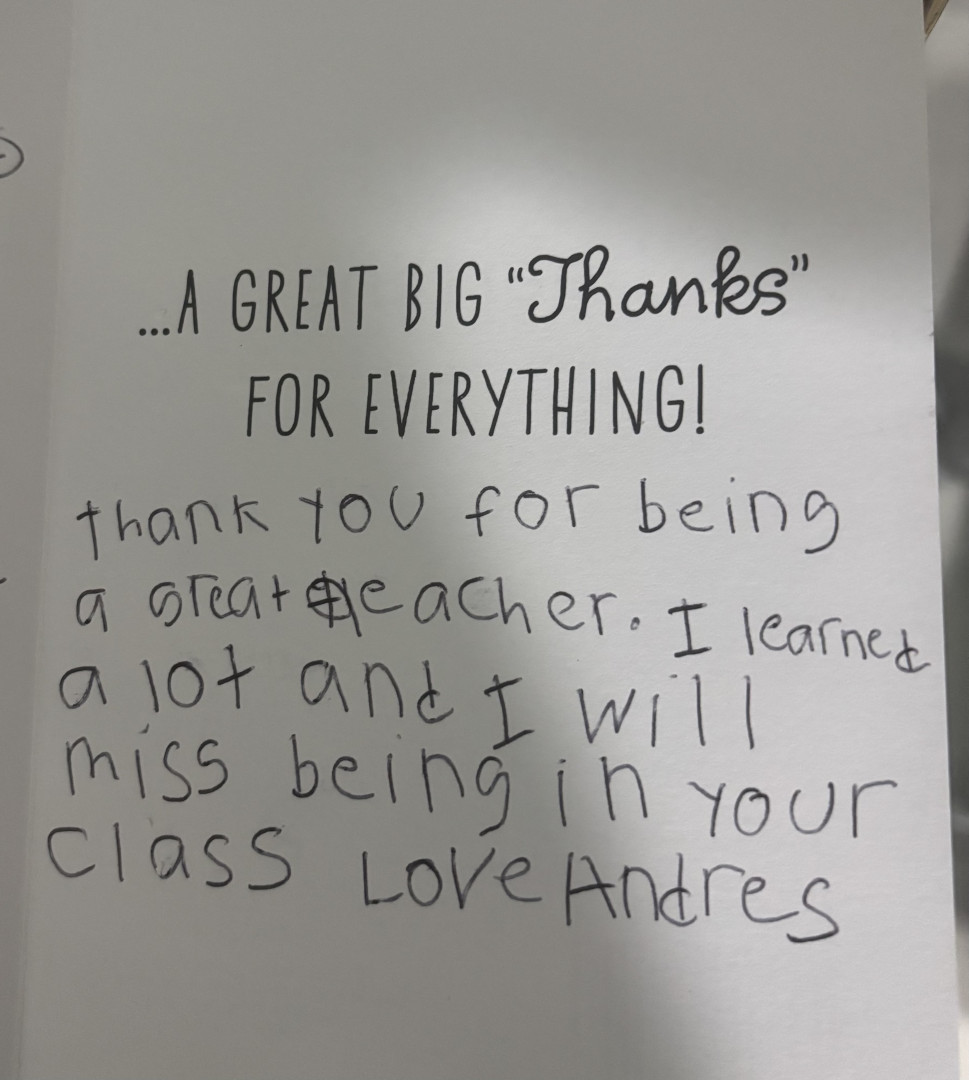 ...A GREAT BIG "Thanks"
FOR EVERYTHING!
thank YOU for being
a great teacher. I learned
a lot and I will
miss being in your
Class Love Andres